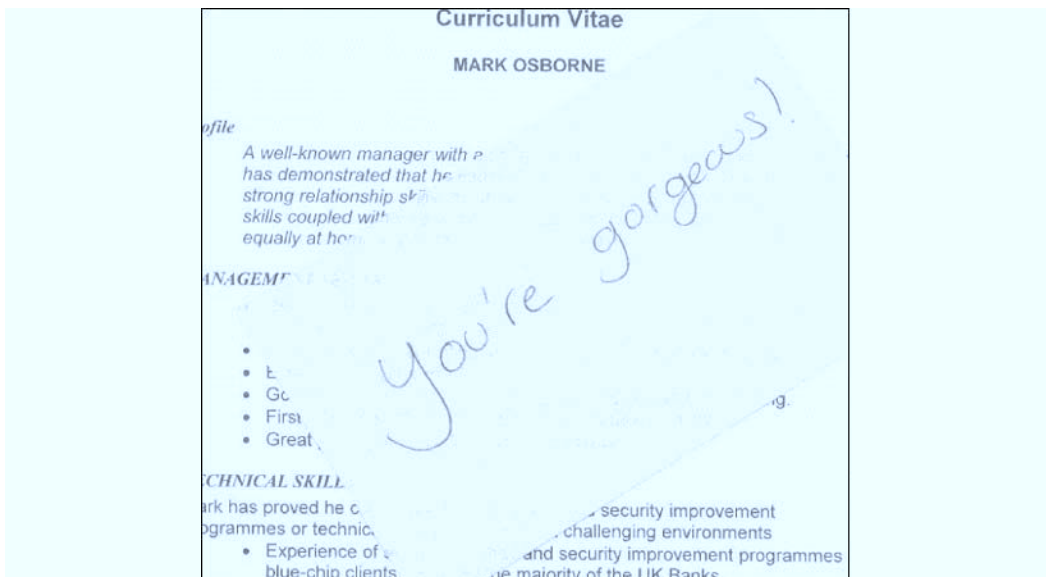 Curriculum Vitae
MARK OSBORNE
ofile
A well-known manager with
has demonstrated that he
strong relationship
skills coupled with
equally at
You're gorgeous!
ANAGEM
Go
First
Great
ECHNICAL SKILL
ark has proved he security improvement
ogrammes or technic challenging environments
Experience of and security improvement programmes
blue-chip clients majority of the UK Banks